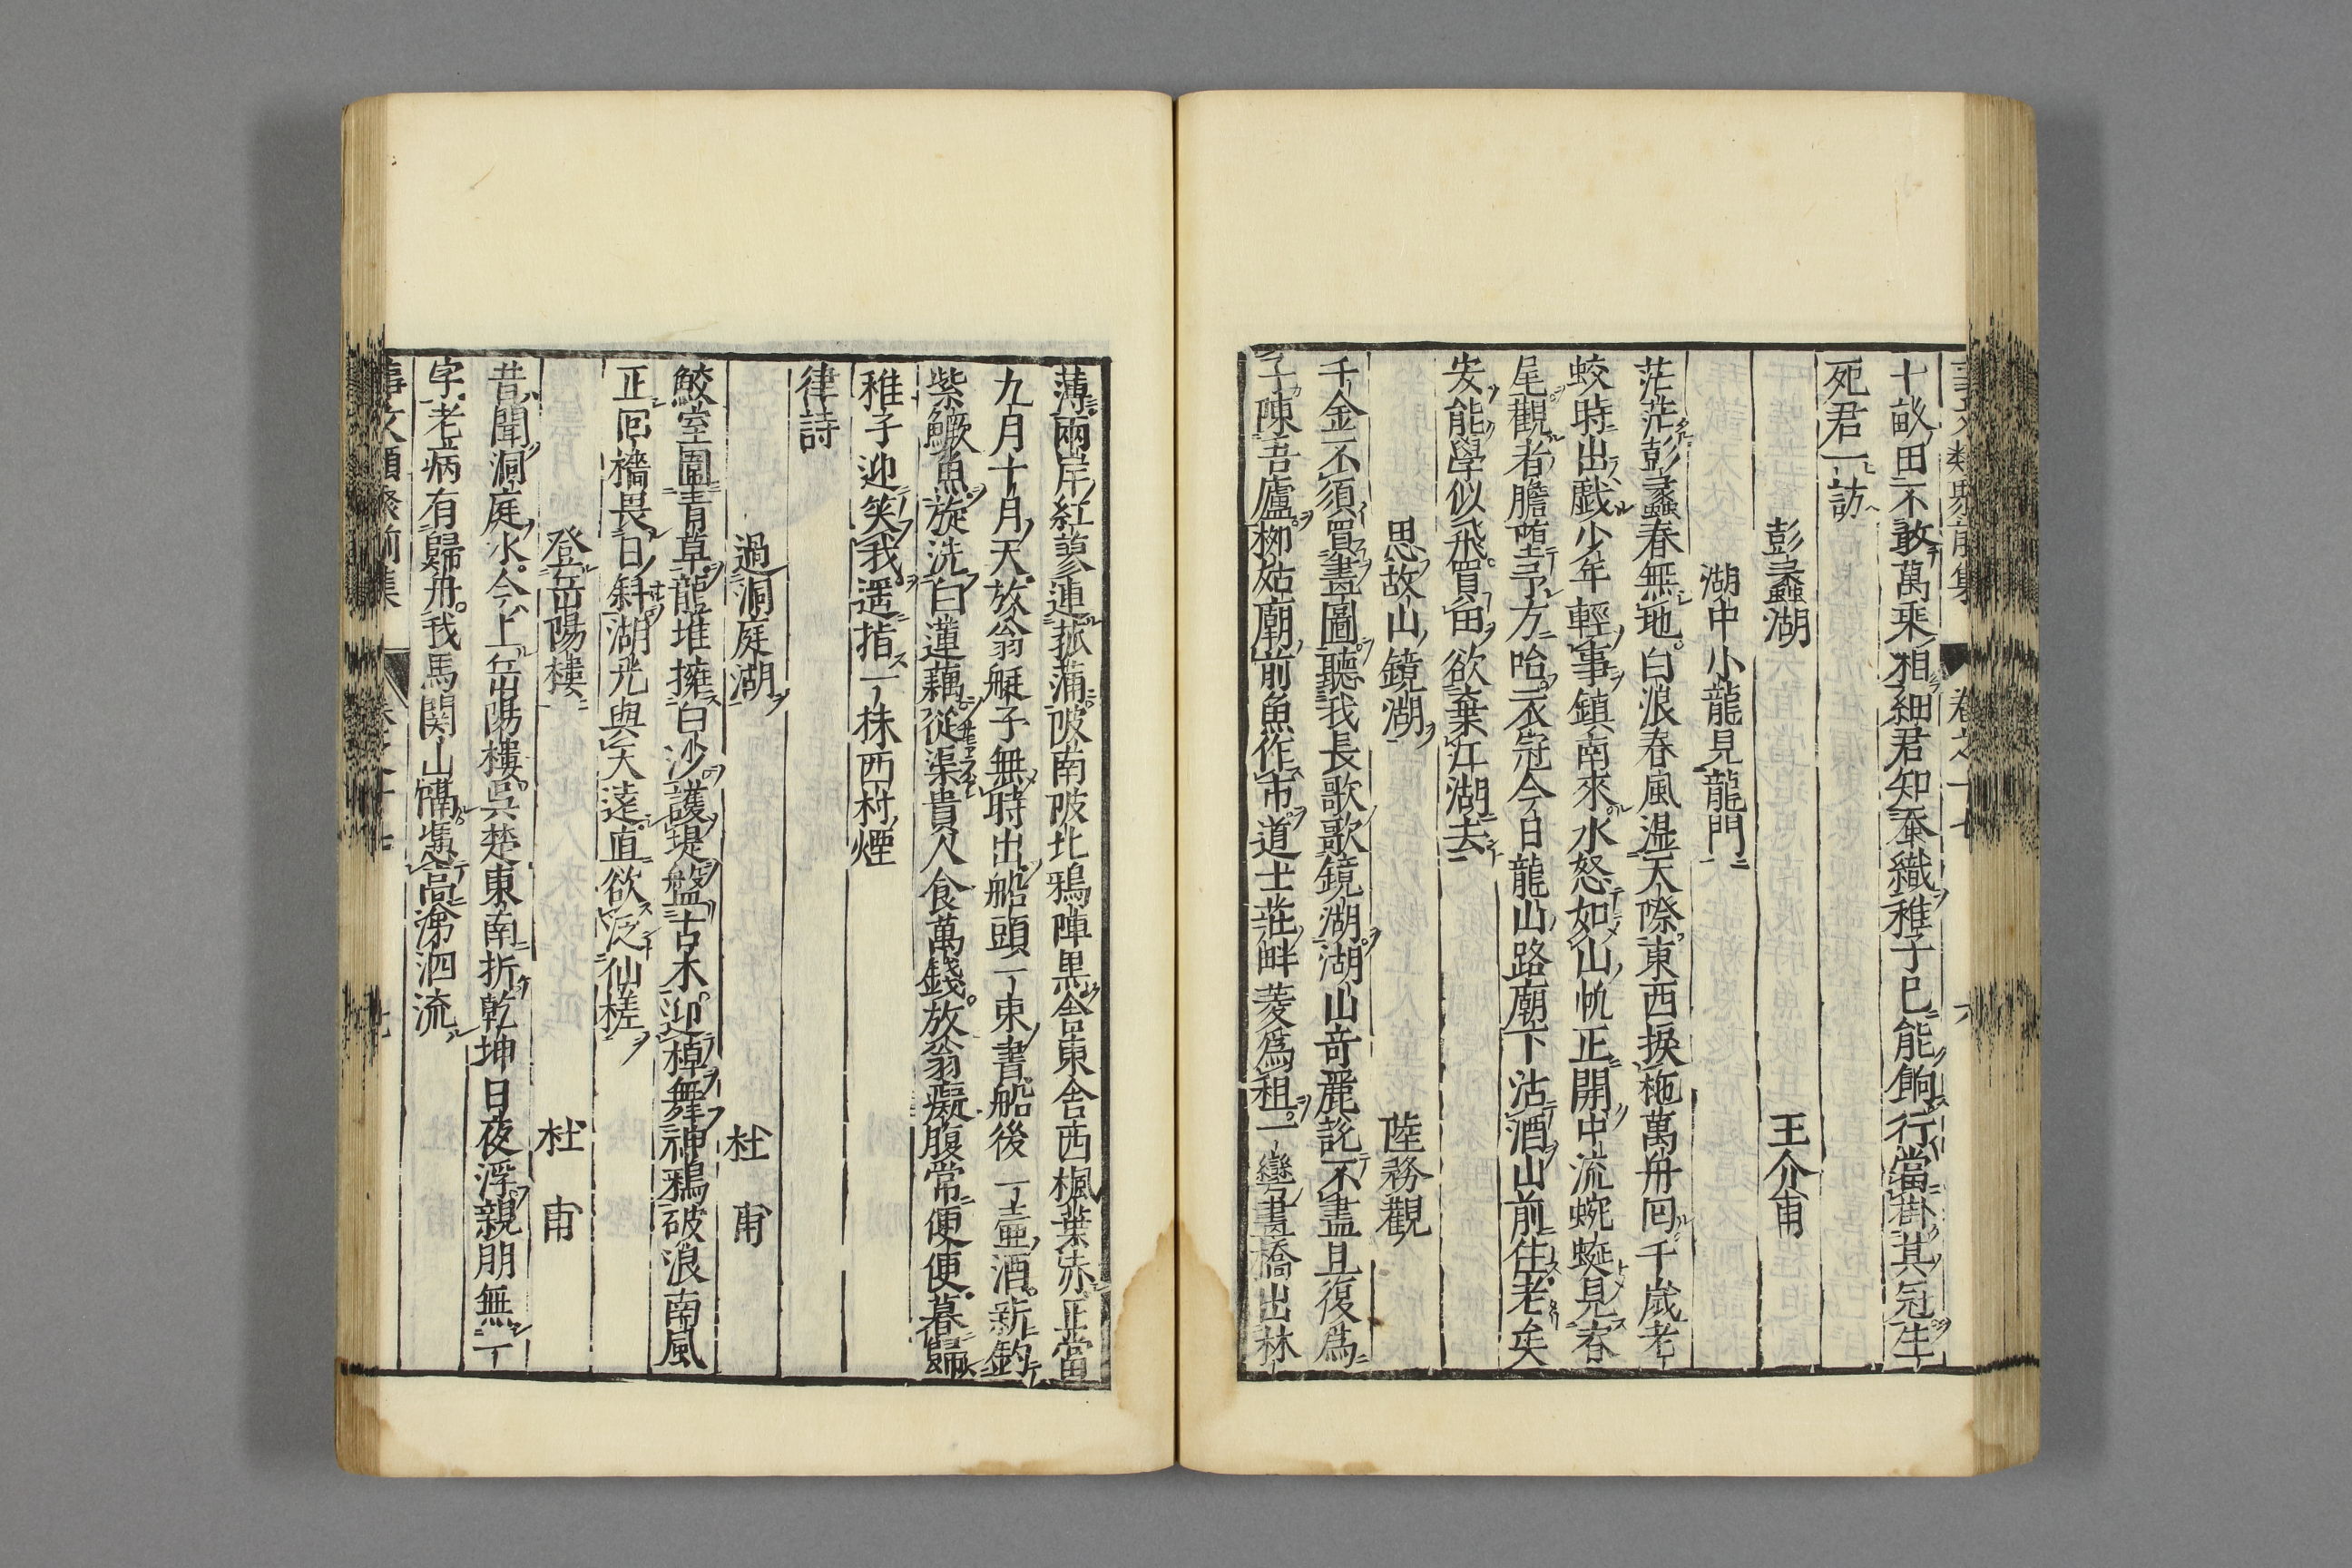 十畝田不敢萬乗相細君知蚕織稚子已能餉行當掛其冠生
死君一訪
彭蠡湖　王介甫
湖中小龍見龍門
茫茫彭蠡春無地白浪春風湿天際東西捩柂萬舟回千歳老
蛟時出戯少年輕事鎮南來水怒如山帆正開中流蜿蜒見脊
尾觀者膽墮予方咍衣冠今日龍山路廟下沽酒山前住老矣
安能學佽飛買田欲棄江湖去
思故山鏡湖　陸務觀
千金不須買畫圖聽我長歌歌鏡湖湖山竒麗說不盡且復為
子陳吾廬栁姑廟前魚作市道士莊畔菱爲租一彎畫橋出林
薄兩岸紅蓼連菰蒲陂南陂北鴉陣黒舎東舎西楓葉赤正當
九月十月天放翁艇子無時出船頭一束書船後一壷酒新釣
紫鱖魚旋洗白蓮藕從渠貴人食萬錢放翁癡腹常便便暮歸
稚子迎笑我遥指一抹西村煙
律詩
過洞庭湖　杜甫
鮫室圍青草龍堆擁白沙護堤盤古木迎棹舞神鴉破浪南風
正囘檣畏日斜湖光與天遠直欲泛仙槎
登岳陽樓　杜甫
昔聞洞庭水今上岳陽樓呉楚東南折乾坤日夜浮親朋無一
字老病有歸舟我馬関山隔憑高涕泗流